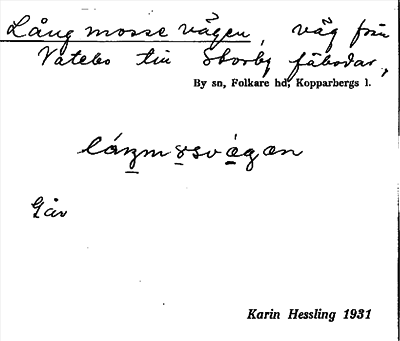 Lång mosse vägen, väg från
Vatebo till Storby fäbodar,
By sn, Folkare hd, Kopparbergs l.
Går
Karin Hessling 1931